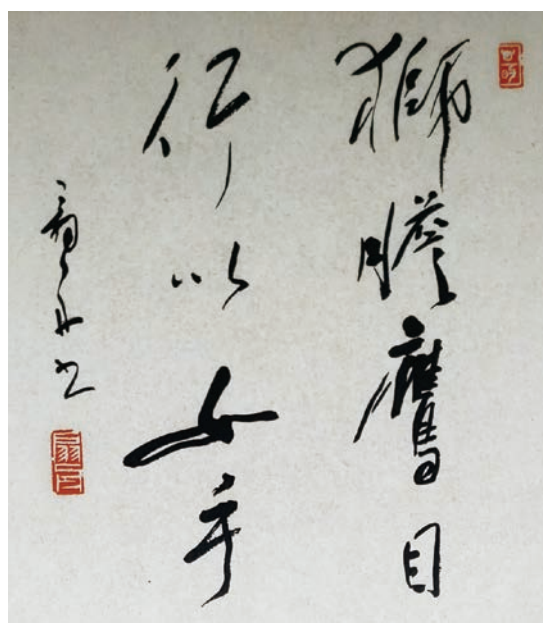 獅膽鷹目
行以女手